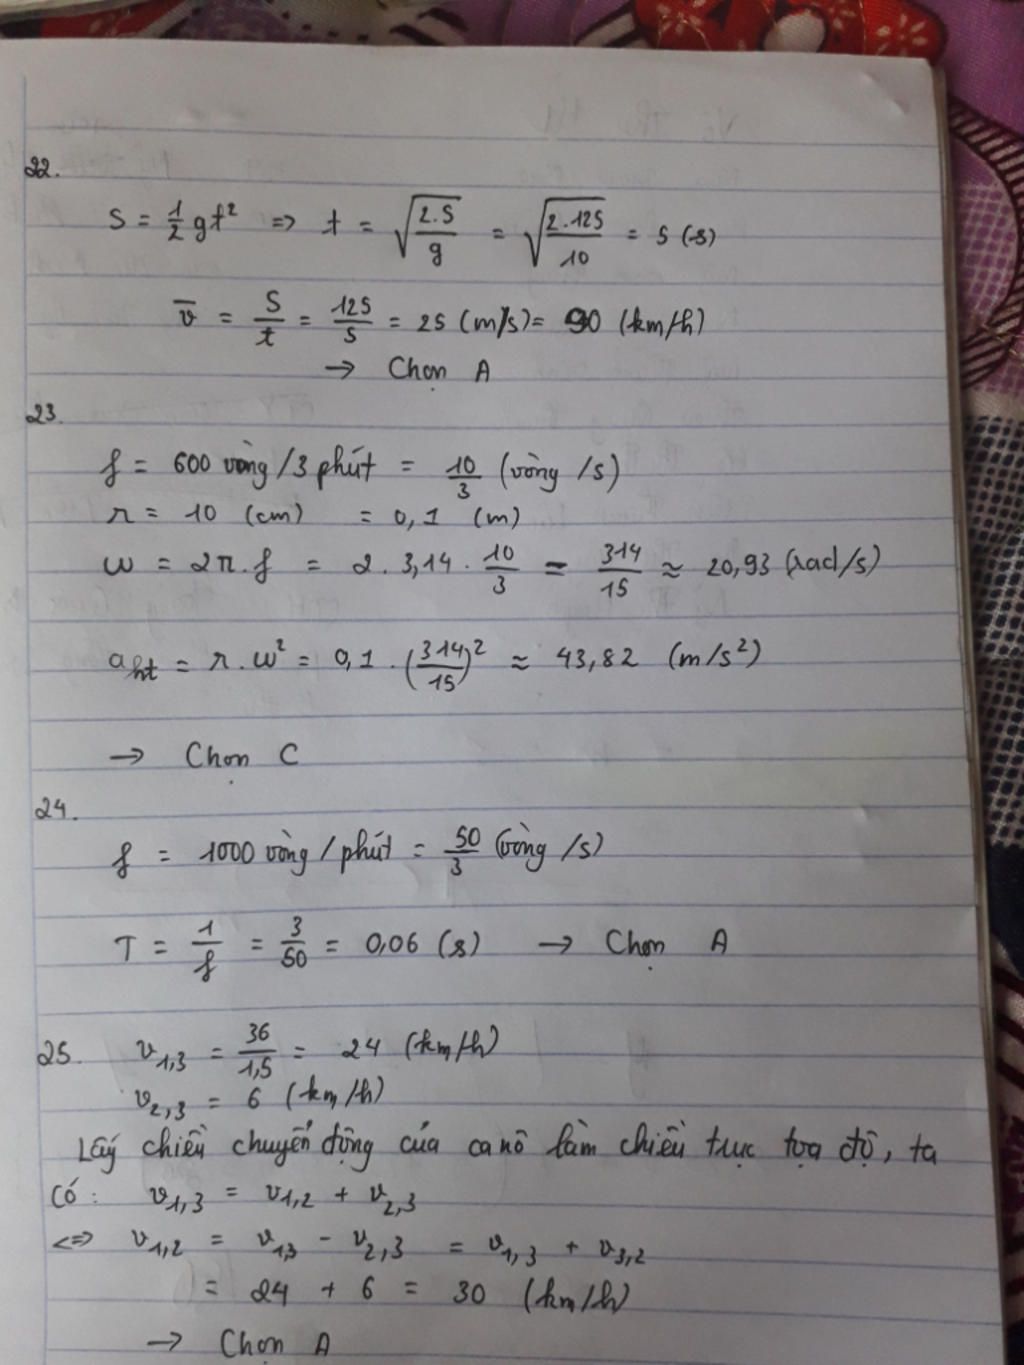 22.
S = 1/2 gt² => t = √(2.S/g) = √(2.125/10) = 5 (s)
v̄ = S/t = 125/5 = 25 (m/s) = 90 (km/h)
→ Chọn A
23.
f = 600 vòng /3 phút = 10/3 (vòng /s)
r = 10 (cm) = 0,1 (m)
ω = 2π.f = 2. 3,14 . 10/3 = 314/15 ≈ 20,93 (rad/s)
aht = r.ω² = 0,1 . (314/15)² ≈ 43,82 (m/s²)
→ Chọn C
24.
f = 1000 vòng / phút = 50/3 (vòng /s)
T = 1/f = 3/50 = 0,06 (s) → Chọn A
25. v1,3 = 36/1,5 = 24 (km/h)
v2,3 = 6 (km/h)
Lấy chiều chuyển động của ca nô làm chiều trục tọa độ, ta
có: v1,3 = v1,2 + v2,3
<=> v1,2 = v1,3 - v2,3 = v1,3 + v3,2
= 24 + 6 = 30 (km/h)
→ Chọn A